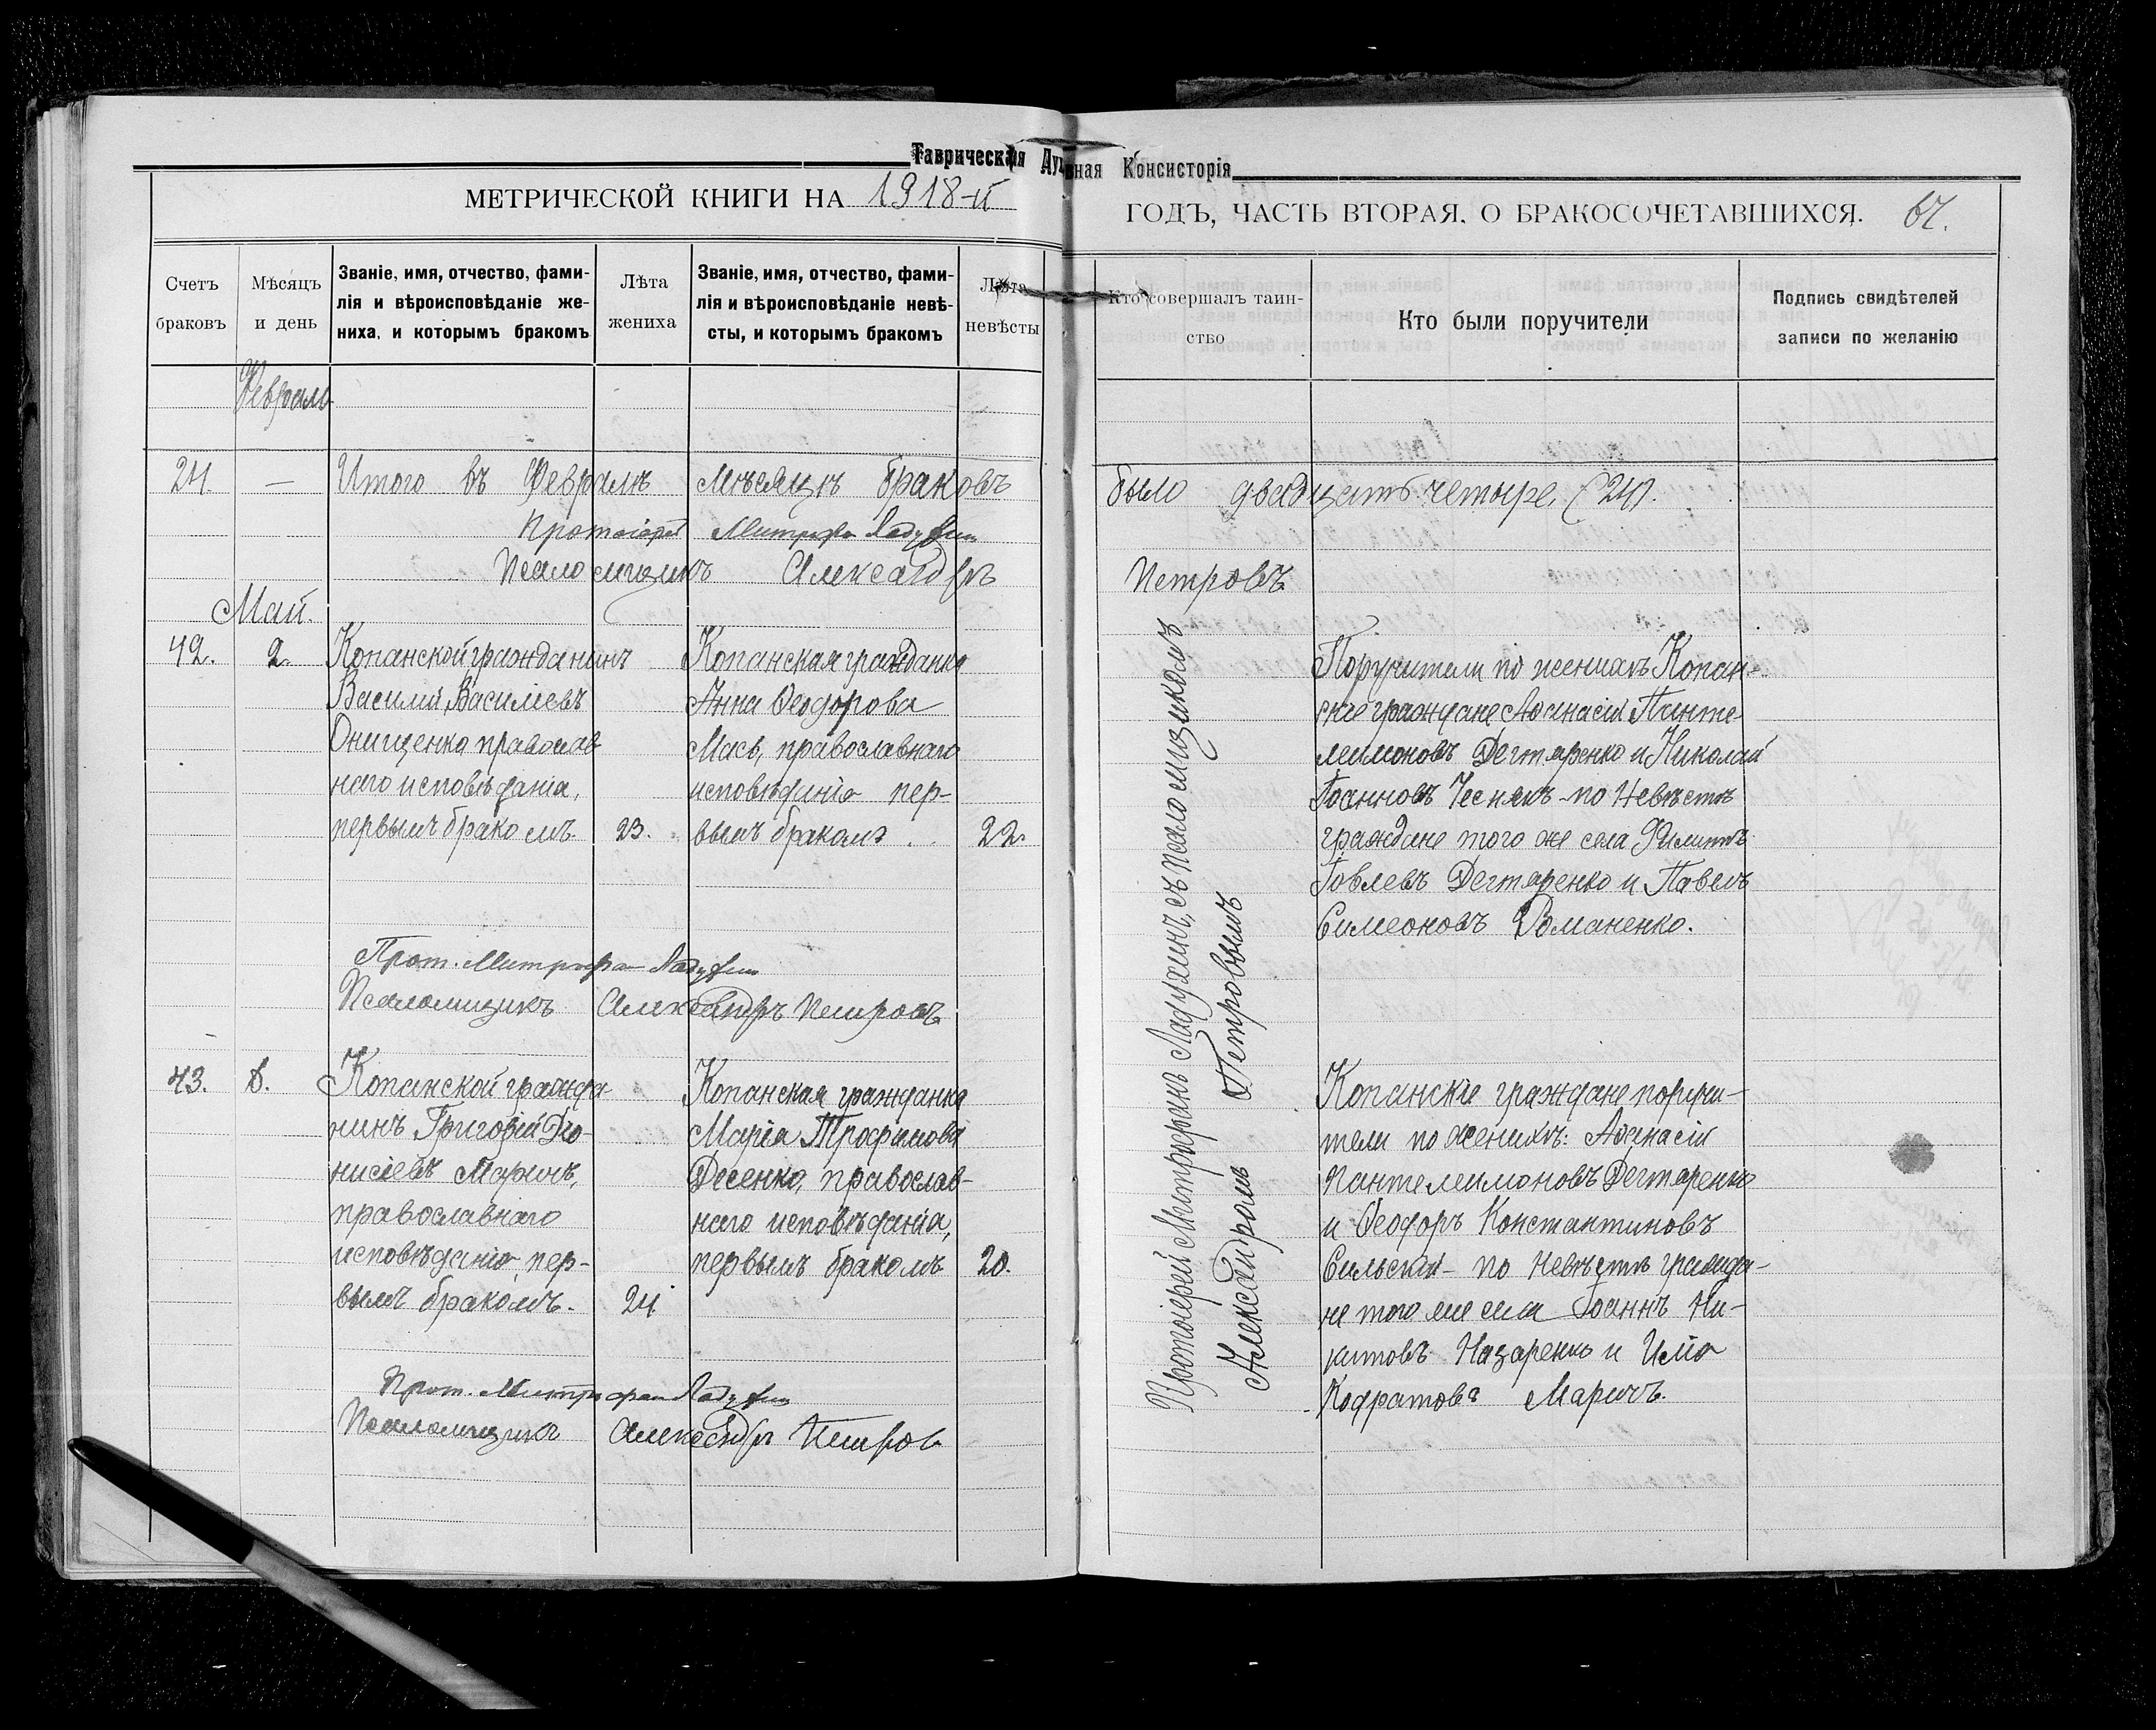 Таврическая Духовная Консисторія
МЕТРИЧЕСКОЙ КНИГИ НА 1918-й
ГОДЪ, ЧАСТЬ ВТОРАЯ, О БРАКОСОЧЕТАВШИХСЯ. 67.
Счетъ браковъ
Мѣсяцъ и день
Званіе, имя, отчество, фами-
лія и вѣроисповѣданіе же-
ниха, и которымъ бракомъ
Лѣта жениха
Званіе, имя, отчество, фами-
лія и вѣроисповѣданіе невѣ-
сты, и которымъ бракомъ
Лѣта невѣсты
Кто совершалъ таин-
ство
Кто были поручители
Подпись свидѣтелей
записи по желанію
Февраль
24. — Итого въ Февралѣ мѣсяцѣ браковъ было двадцать четыре, (24).
Протоіерей Митрофан Ладухин
Псаломщикъ Александръ Петровъ
Май.
42. 2.
Копанской гражданинъ
Василій Василіевъ
Онищенко православ
наго исповѣданія,
первымъ бракомъ. 23.
Копанская гражданка
Анна Ѳеодорова
Мась, православнаго
исповѣданія пер-
вымъ бракомъ. 22.
Протоіерей Митрофанъ Ладухинъ, съ псаломщикомъ
Александромъ Петровымъ
Поручители по женихѣ Копан-
скіе граждане Аѳанасій Панте-
леимоновъ Дегтяренко и Николай
Іоанновъ Чеснякъ - по невѣстѣ
граждане того же села Филиппъ
Іовлевъ Дегтяренко и Павелъ
Симеоновъ Романенко.
Прот. Митрофан Ладухин
Псаломщикъ Александръ Петровъ
43. 8.
Копанской гражда-
нинъ Григорій Діо-
нисіевъ Маричъ,
православнаго
исповѣданія, пер-
вымъ бракомъ. 24
Копанская гражданка
Марія Трофимова
Десенко, православ-
наго исповѣданія,
первымъ бракомъ 20.
Копанскіе граждане поручи-
тели по женихѣ: Аѳанасій
Пантелеимоновъ Дегтяренко
и Ѳеодоръ Константиновъ
Сильскій - по невѣстѣ гражда-
не того же села Іоаннъ Ни-
китовъ Назаренко и Илія
Кодратовъ Маричъ.
Прот. Митрофан Ладухин
Псаломщикъ Александръ Петров